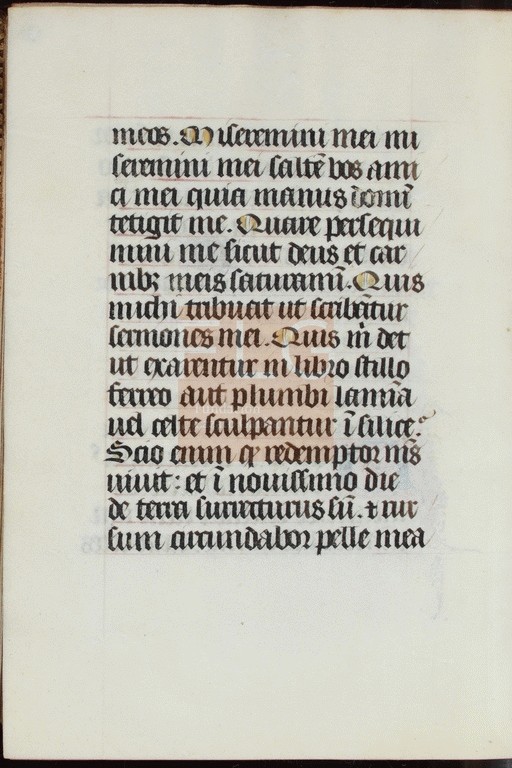 meos. Miseremini mei mi
seremini mei saltē vos ami
ci mei quia manus domī
tetigit me. Quare persequi
mini me sicut deus et car
nibꝫ meis saturamī. Quis
michi tribuat ut scribātur
sermones mei. Quis m̄ det
ut exarentur in libro stillo
ferreo aut plumbi lamīa
uel celte sculpantur ī silice?
Scio enim ꝙ redemptor m̄s
uiuit: et ī nouissimo die
de terra surrecturus sū. ⁊ rur
sum circundabor pelle mea